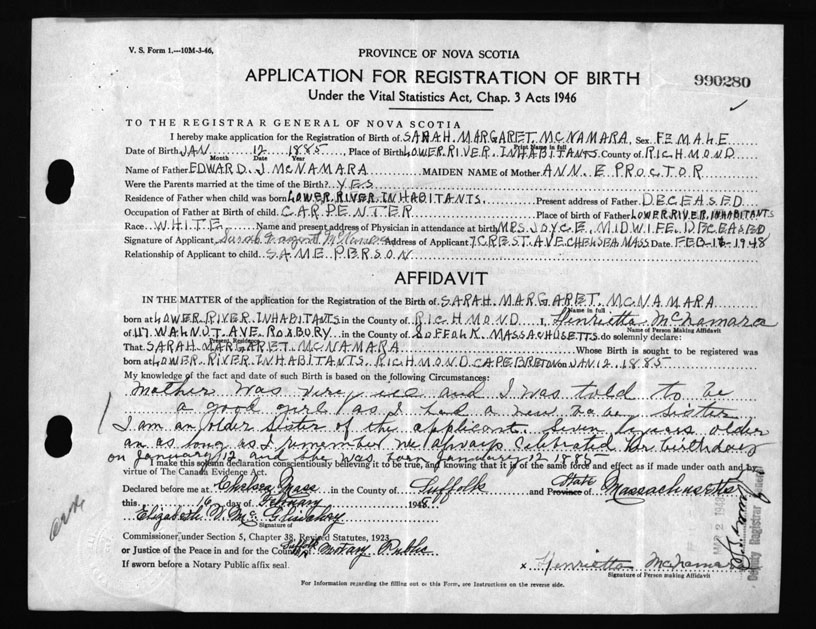 V. S. Form 1.—10M-3-46.
PROVINCE OF NOVA SCOTIA
APPLICATION FOR REGISTRATION OF BIRTH
990280
Under the Vital Statistics Act, Chap. 3 Acts 1946
TO THE REGISTRAR GENERAL OF NOVA SCOTIA
I hereby make application for the Registration of Birth of SARAH. MARGARET. MCNAMARA, Sex FEMALE
Print Name in full
Date of Birth JAN 12 1885, Place of Birth LOWER RIVER INHABITANTS County of RICHMOND
Month Date Year
Name of Father EDWARD. J. MCNAMARA MAIDEN NAME of Mother ANN. E PROCTOR
Were the Parents married at the time of the Birth? YES
Residence of Father when child was born LOWER RIVER INHABITANTS. Present address of Father DECEASED
Occupation of Father at Birth of child. CARPENTER Place of birth of Father LOWER RIVER INHABITANTS
Race WHITE Name and present address of Physician in attendance at birth MRS. JOYCE, MIDWIFE. DECEASED
Signature of Applicant Sarah Margaret McNamara Address of Applicant 7 CREST. AVE CHELSEA MASS Date. FEB-16-1948
Relationship of Applicant to child. SAME PERSON
AFFIDAVIT
IN THE MATTER of the application for the Registration of the Birth of SARAH. MARGARET. MCNAMARA
Name in full
born at LOWER RIVER INHABITANTS in the County of RICHMOND I, Henrietta McNamara
Name of Person Making Affidavit
of 117 WALNUT AVE ROXBORY in the County of SUFFOLK. MASSACHUSETTS do solemnly declare:
Present Residence
That SARAH MARGARET MCNAMARA Whose Birth is sought to be registered was
born at LOWER RIVER INHABITANTS RICHMOND CAPE BRETON on JAN 12, 1885
My knowledge of the fact and date of such Birth is based on the following Circumstances:
Mother was very and I was told to be
a good girl as I had a new baby sister
I am an older sister of the applicant. Seven years older
an as long as I remember we always celebrated her birthday
on January 12 and she was born January 12 1885
I make this solemn declaration conscientiously believing it to be true, and knowing that it is of the same force and effect as if made under oath and by
virtue of The Canada Evidence Act.
Declared before me at Chelsea Mass in the County of Suffolk and Province of State Massachusetts
this 16 day of February 1948
Elizabeth V.
Signature of
Commissioner under Section 5, Chapter 38, Revised Statutes, 1923
or Justice of the Peace in and for the County of Notary Public
If sworn before a Notary Public affix seal.
x Henrietta McNamara
Signature of Person making Affidavit
Deputy Registrar
MAR 2 1948
For Information regarding the filling out of this Form, see Instructions on the reverse side.